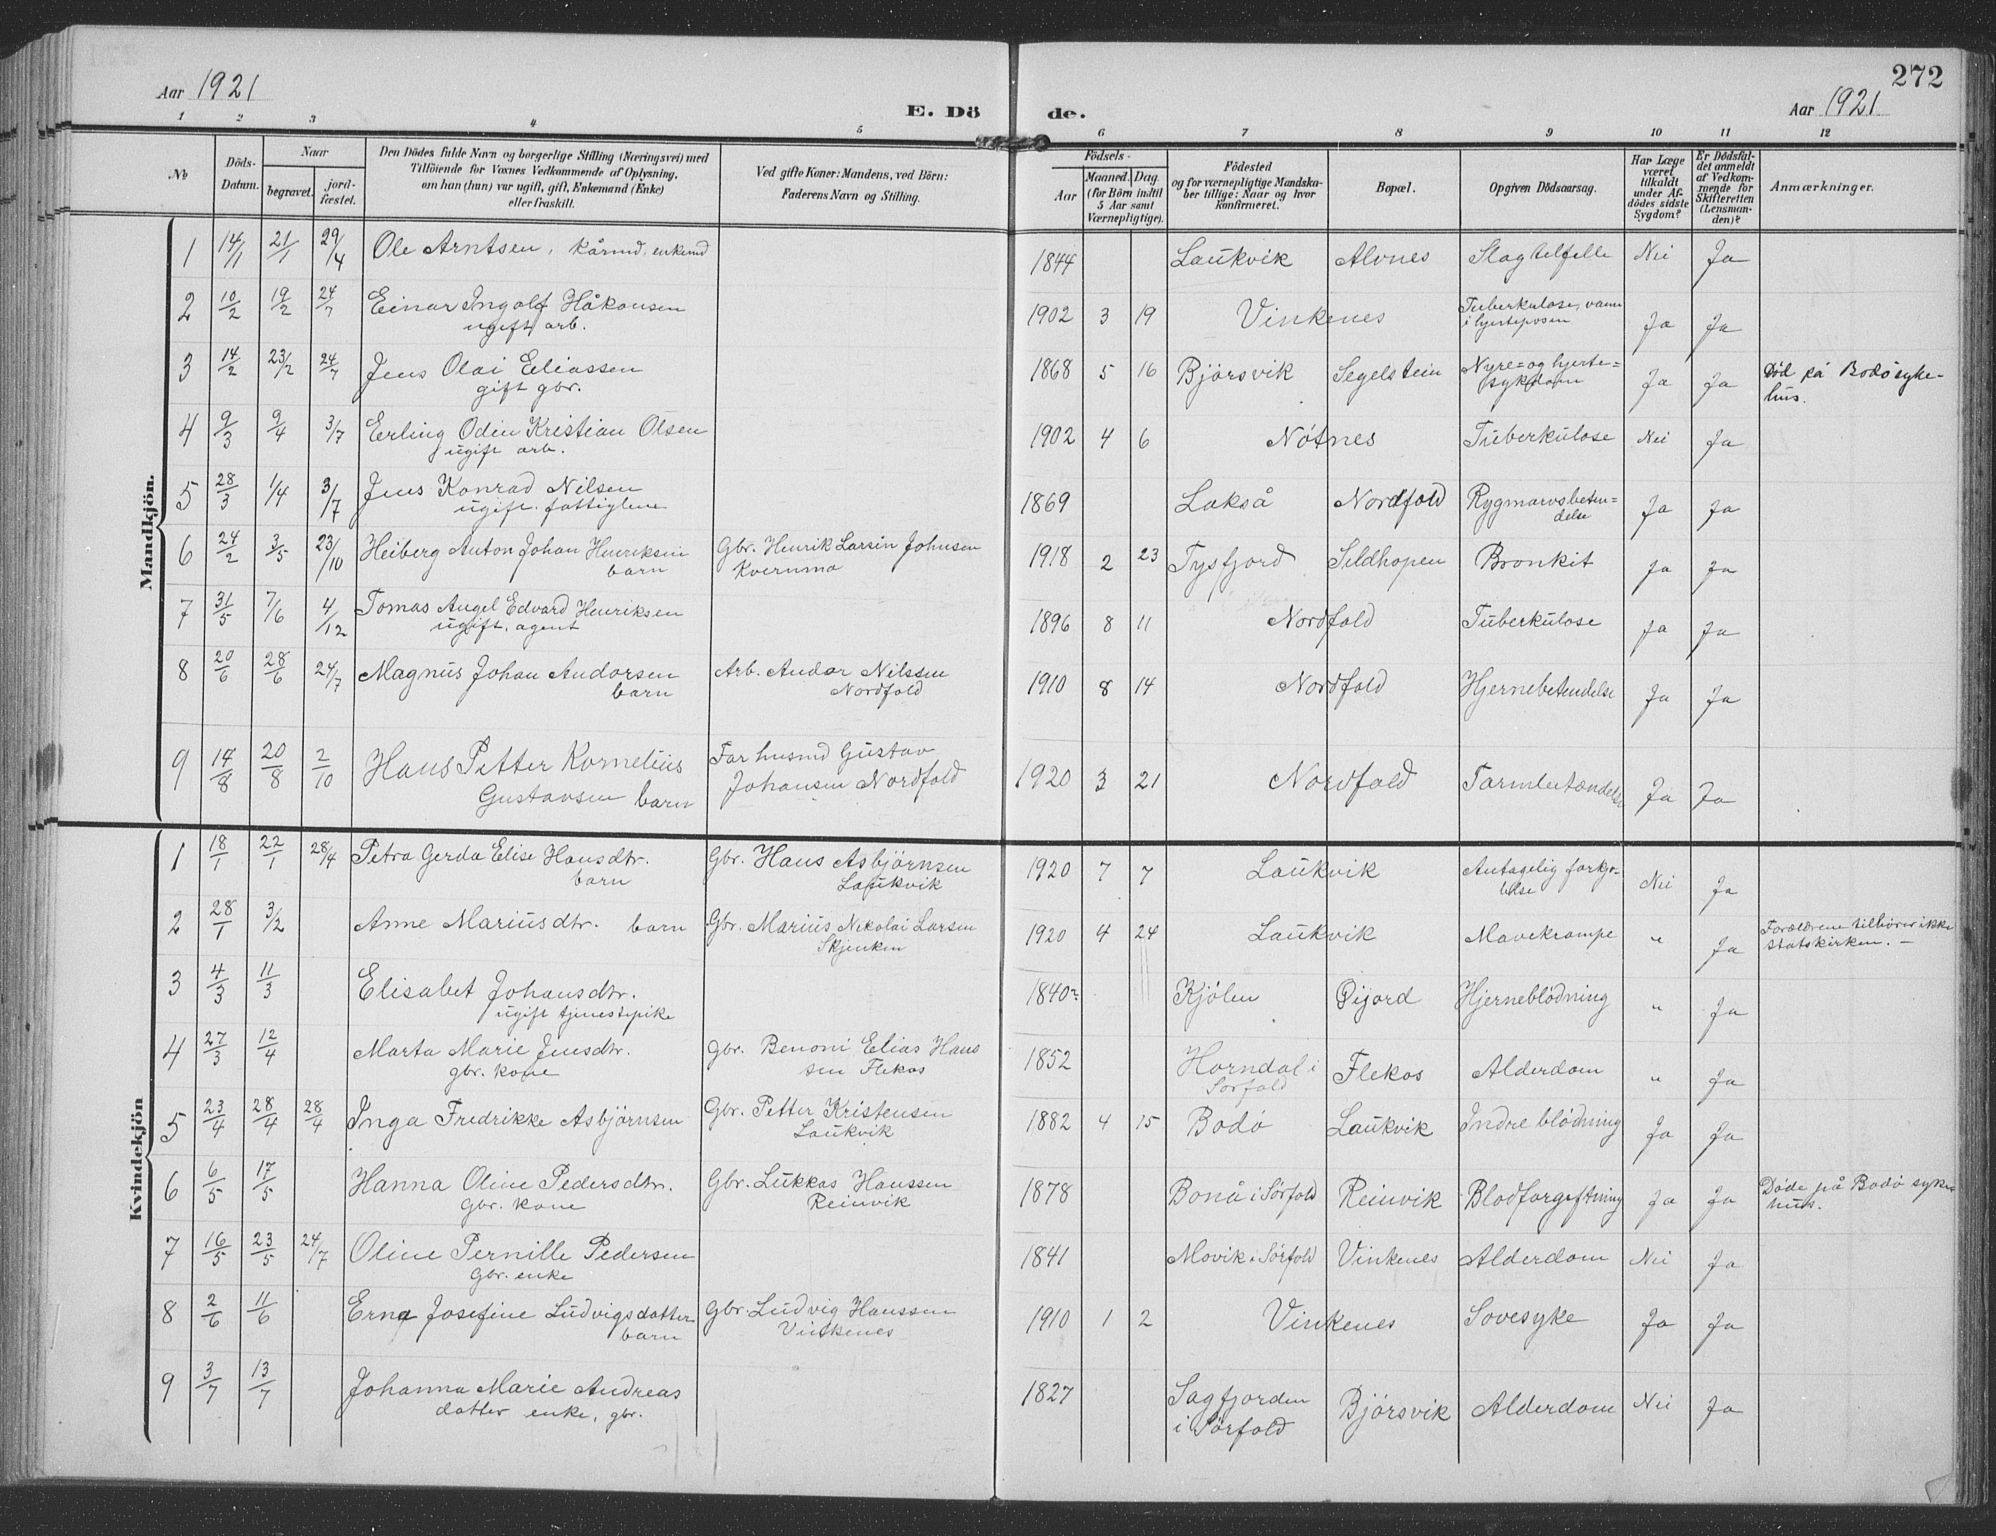 272
Aar 1921
E. Dö de.
Aar 1921
1 2 3 4 5 6 7 8 9 10 11 12
№
Döds-
Datum.
Naar
begravet.
jord-
fæstet.
Den Dödes fulde Navn og borgerlige Stilling (Næringsvei) med
Tilföiende for Voxnes Vedkommende af Oplysning,
om han (hun) var ugift, gift, Enkemand (Enke)
eller fraskilt.
Ved gifte Koner: Mandens, ved Börn:
Faderens Navn og Stilling.
Födsels-
Aar
Maaned. Dag.
(for Börn indtil
5 Aar samt
Værnepligtige).
Födested
og for værnepligtige Mandska-
ber tillige: Naar og hvor
konfirmeret.
Bopæl.
Opgiven Dödsaarsag.
Har Læge
været
tilkaldt
under Af-
dödes sidste
Sygdom?
Er Dödsfal-
det anmeldt
af Vedkom-
mende for
Skifteretten
(Lensman-
den)?
Anmærkninger.
Mandkjön.
1 14/1 21/1 29/4 Ole Arntsen, kårmd, enkemd 1844 Laukvik Alvnes Slagtilfelle Nei Ja
2 10/2 19/2 24/7 Einar Ingolf Håkonsen 1902 3 19 Vinkenes Tuberkulose, vann Ja Ja
ugift arb. i hjerteposen
3 14/2 23/2 24/7 Jens Olai Eliassen 1868 5 16 Bjørsvik Segelstein Nyre= og hjerte= Ja Ja Død på Bodö syke-
gift gbr. sykdom hus.
4 9/3 9/4 3/7 Erling Odin Kristian Olsen 1902 4 6 Nøtnes Tuberkulose Nei Ja
ugift arb.
5 28/3 1/4 3/7 Jens Konrad Nilsen 1869 Lakså Nordfold Rygmarvsbeten= Ja Ja
ugift. fattiglem delse
6 24/2 3/5 23/10 Heiberg Anton Johan Henriksen Gbr. Henrik Larsin Johnsen 1918 2 23 Tysfjord Sildhopen Bronkit Ja Ja
barn Kvernmo
7 31/5 7/6 4/12 Tomas Angel Edvard Henriksen 1896 8 11 Nordfold Tuberkulose Ja Ja
ugift, agent
8 20/6 28/6 24/7 Magnus Johan Andorsen Arb. Andor Nilssen 1910 8 14 Nordfold Hjernebetendelse Ja Ja
barn Nordfold
9 14/8 20/8 2/10 Hans Petter Kornelius Far husmd Gustav 1920 3 21 Nordfold Tarmbetændelse Ja Ja
Gustavsen barn Johansen Nordfold
Kvindekjön
1 18/1 22/1 28/4 Petra Gerda Elise Hansdtr. Gbr. Hans Asbjørnsen 1920 7 7 Laukvik Antagelig forkjø- Nei Ja
barn Laukvik lelse
2 28/1 3/2 Anne Mariusdtr. barn Gbr. Marius Nikolai Larsen 1920 4 24 Laukvik Mavekrampe " Ja Forældrene tilhører ikke
Skjenken statskirken. —
3 4/3 11/3 Elisabet Johansdtr. 1840 Kjølen Øijord Hjerneblödning " Ja
ugift tjenestepike
4 27/3 12/4 Marta Marie Jensdtr. Gbr. Benoni Elias Hans 1852 Horndal i Flekos Alderdom " Ja
gbr. kone sen Flekos Sørfold
5 23/4 28/4 28/4 Inga Fredrikke Asbjørnsen Gbr. Petter Kristensen 1882 4 15 Bodø Laukvik Indre blödning Ja Ja
Laukvik
6 6/5 17/5 Hanna Oline Pedersdtr. Gbr. Lukkas Hanssen 1878 Bonå i Sørfold Reinvik Blodforgiftning Ja Ja Døde på Bodø syke-
Gbr. kone Reinvik hus.
7 16/5 23/5 24/7 Oline Pernille Pedersen 1841 Movik i Sørfold Vinkenes Alderdom Nei Ja
Gbr. enke
8 2/6 11/6 Erna Josefine Ludvigsdatter Gbr. Ludvig Hanssen 1910 1 2 Vinkenes Sovesyke Ja Ja
barn Vinkenes
9 3/7 13/7 Johanna Marie Andreas 1827 Sagfjorden Bjørsvik Alderdom Nei Ja
datter enke, gbr. i Sørfold